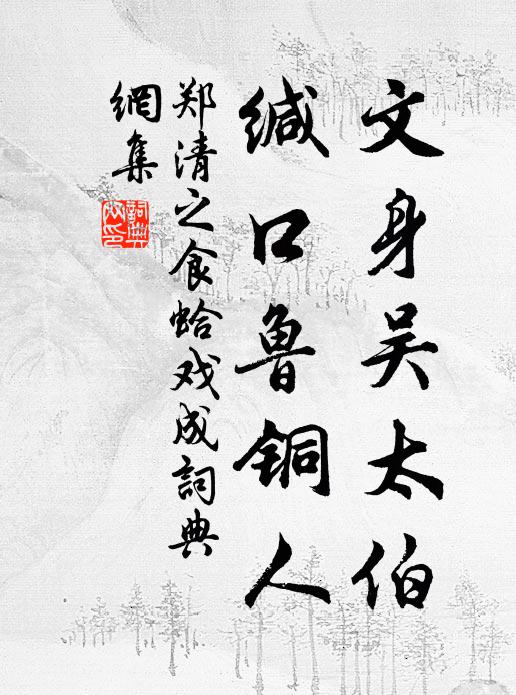 文身吴太伯
缄口鲁铜人
郑清之食蛤戏成詞典
網集
詞典網印